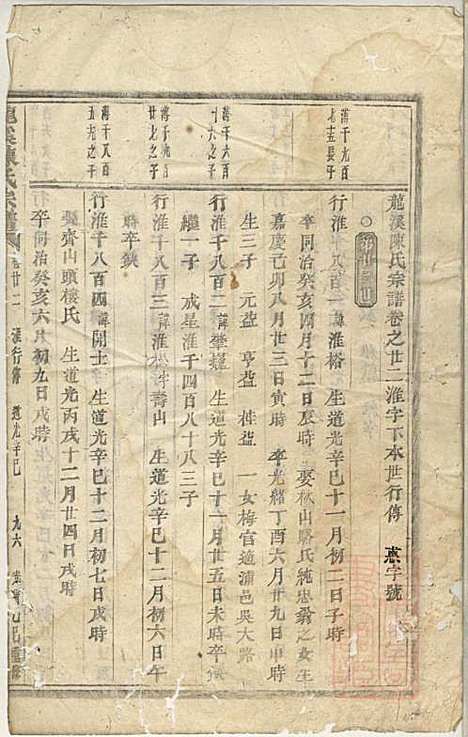 龍溪陳氏宗譜卷之廿二淮字下本世行傳 惠字號
蒲千九百
行淮千八百一諱淮裕 生道光辛巳十一月初二日子時
卒同治癸亥四月十二日辰時 娶秋山駱氏純忠翁之女生
嘉慶己卯八月廿三日寅時 卒光緒丁酉六月廿九日申時
生三子 元益 亨益 桂益 一女梅官適浦邑吳大路
蒲千六百
行淮千八百二諱 生道光辛巳十一月廿五日未時卒
繼一子 戒星淮千四百八十八三子
蒲千八百
廿九之子
行淮千八百三諱淮 壽山 生道光辛巳十二月初六日午
時卒缺
蒲千八百
五 之子
行淮千八百四諱開士 生道光辛巳十二月初七日戌時
娶齊山頭樓氏 生道光丙戌十二月廿四日戌時
卒同治癸亥六月初九日戌時
龍溪陳氏宗譜 卷廿二 淮行傳 道光辛巳 九六